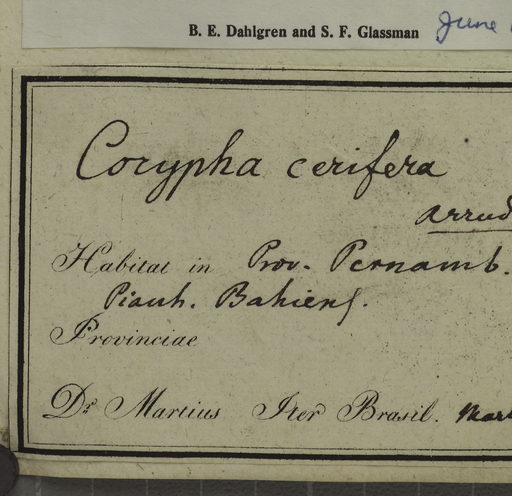 B. E. Dahlgren and S. F. Glassman June
Corypha cerifera
Arrud
Habitat in Prov. Pernamb.
Piauh. Bahiens.
Provinciae
Dr. Martius Iter Brasil. Mart